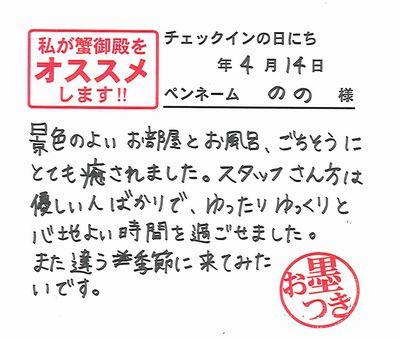 私が蟹御殿を
オススメ
します!!
チェックインの日にち
年4月14日
ペンネーム のの 様
景色のよいお部屋とお風呂、ごちそうに
とても癒されました。スタッフさん方は
優しい人ばかりで、ゆったりゆっくりと
心地よい時間を過ごせました。
また違う季節に来てみた
いです。
墨
おつき